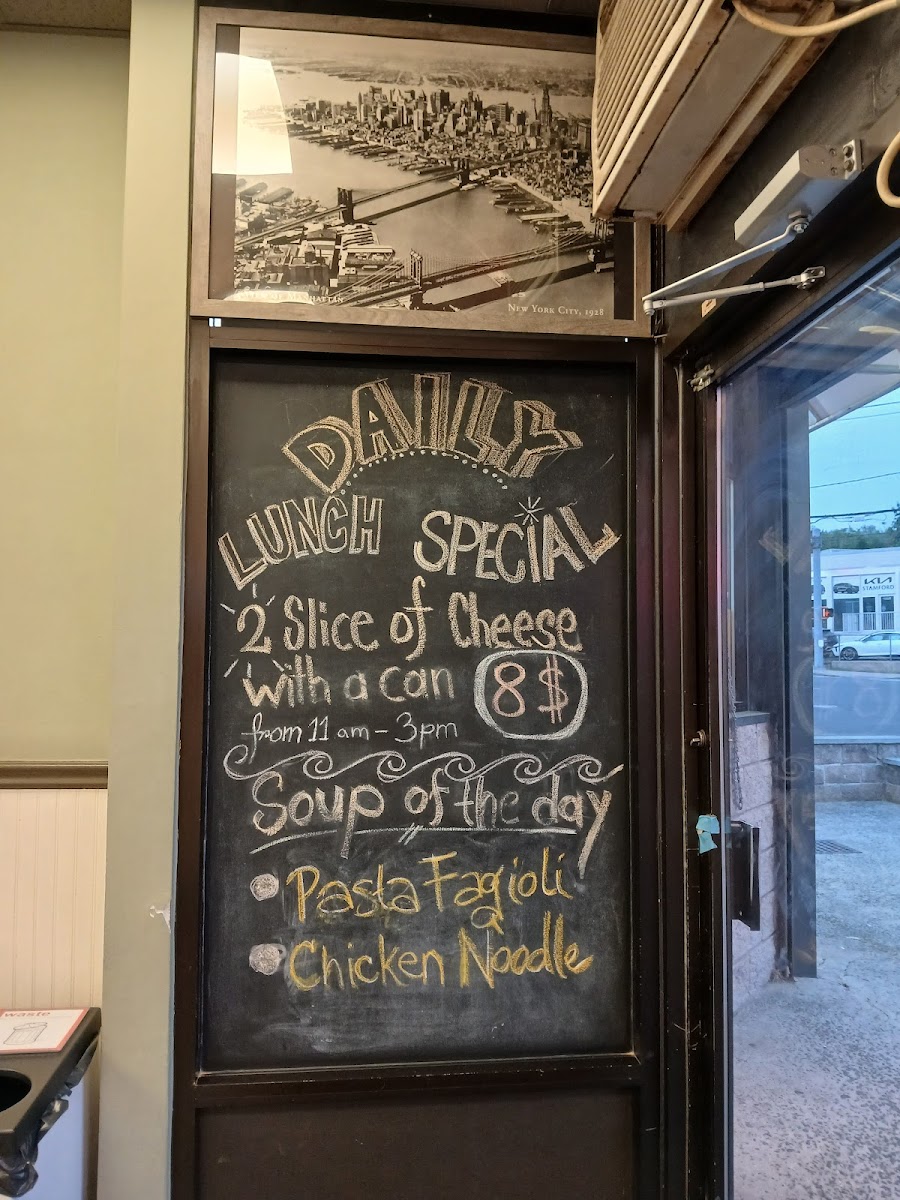 New York City, 1928
DAILY
LUNCH SPECIAL
2 Slice of Cheese
with a can 8$
from 11 am - 3pm
Soup of the day
Pasta Fagioli
Chicken Noodle
waste
KIA
STAMFORD